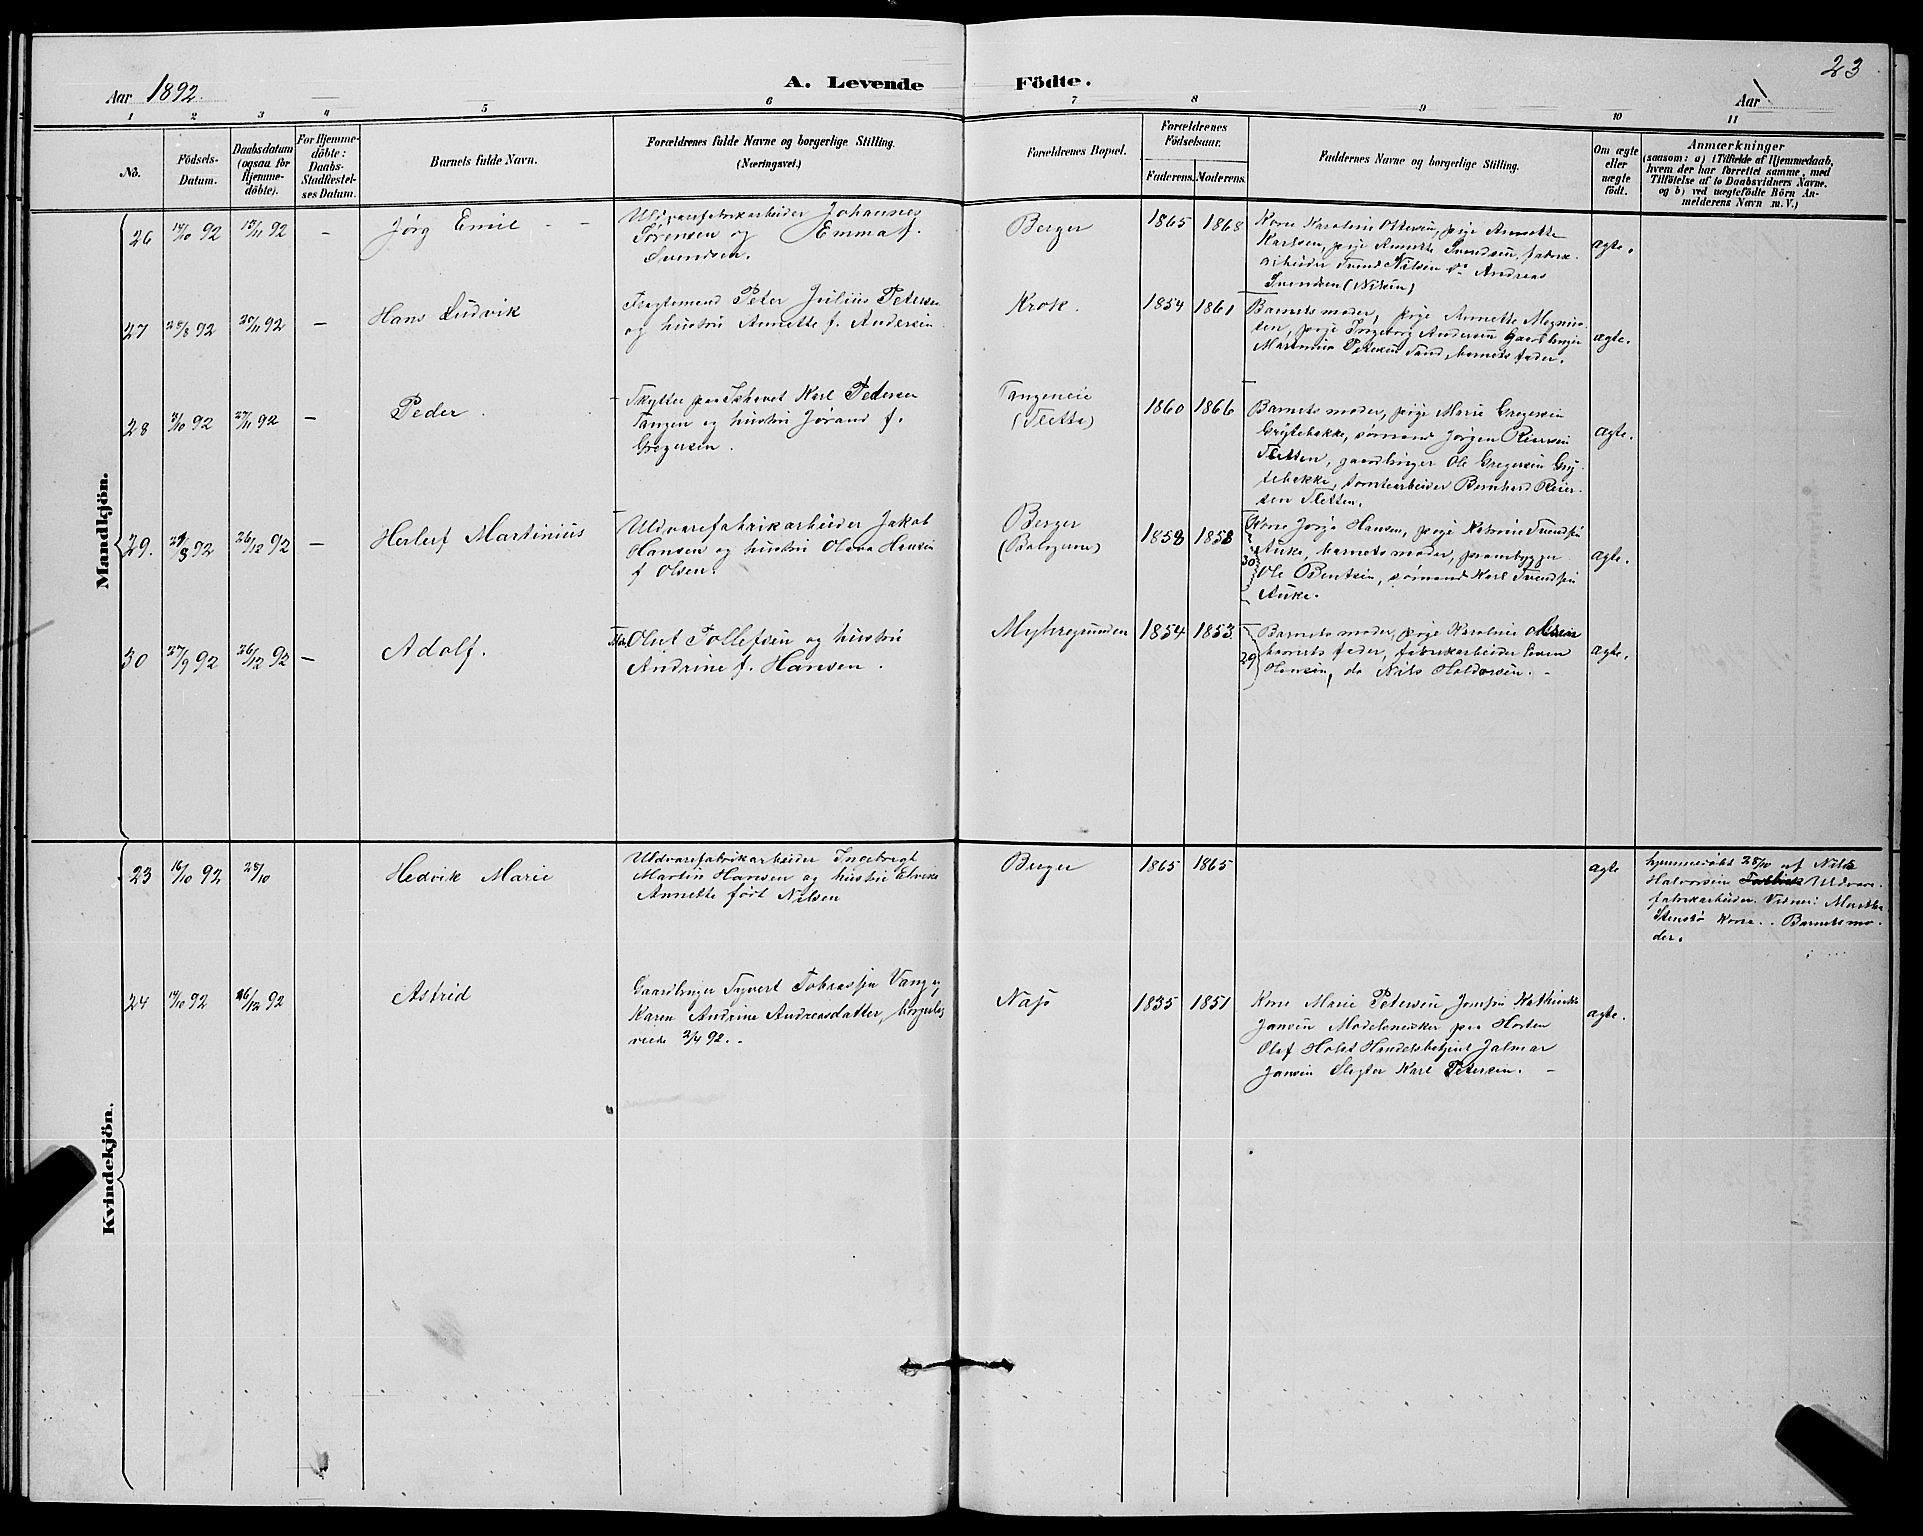 23
Aar 1892.
A. Levende Födte.
Aar
1 2 3 4 5 6 7 8 9 10 11
No.
Födsels-
Datum.
Daabsdatum
(ogsaa for
Hjemme-
döbte).
For Hjemme-
döbte:
Daabs-
Stadfæstel-
ses Datum.
Barnets fulde Navn.
Forældrenes fulde Navne og borgerlige Stilling.
(Næringsvei.)
Forældrenes Bopæl.
Forældrenes
Födselsaar.
Faderens. Moderens.
Faddernes Navne og borgerlige Stilling.
Om ægte
eller
uægte
födt.
Anmærkninger
(saasom: a) i Tilfælde af Hjemmedaab,
hvem der har forrettet samme, med
Tilföielse af to Daabsvidners Navne,
og b) ved uægtefödte Börn An-
melderens Navn m. V.)
Mandkjön.
26 92 92 -
Jørg Emil - -
Uldvarefabrikarbeider Johannes
Sørensen og Emma f.
Svendsen.
Berger
1865 1868
Kone Karoline Ottersen, pige Annette
Karlsen, pige Annette Svendsen, fabrik-
arbeider Nilsen Andreas
Svendsen (Nilsen)
ægte.
27 28/8 92 92 -
Hans Ludvik
Fragtemand Peter Julius Petersen
og hustru Annette f. Andersen.
Krok.
1854 1861
Barnets moder, pige Annette Magnus-
sen, pige Ingeborg Andersen Gaardbruger
Petersen Sand, barnets fader.
ægte.
28 92 27/11 92 -
Peder.
Skytter paa Ishavet Karl Petersen
Tangen og hustru Jørand f.
Gregersen.
Tangeneie
(Sletta)
1860 1866
Barnets moder, pige Marie Gregersen
Grytebakke, sømand Jørgen Reiersen
Sletten, gaardbruger Ole Gregersen Gry-
tebakke, tomtearbeider Bernhard Reier-
sen Sletten.
ægte.
29. 92 26/12 92 -
Herlof Martinius
Uldvarefabrikarbeider Jakob
Hansen og hustru Olava Hansen
f Olsen.
Berger
1858 1858
30
Kone Hansen, pige Svendsen
Auke, barnets moder, prambygger
Ole Bentsen, sømand Karl Svendsen
Auke.
ægte.
30 27/9 92 26/12 92 -
Adolf.
Oluf Tollefsen og hustru
Andrine f. Hansen.
Myhregrunden
1854 1853
29
Barnets moder, pige Karoline Olsen
barnets fader, fabrikarbeider
Hansen, do Nils Haldorsen. -
ægte.
Kvindekjön.
23 16/10 92 28/10
Hedvik Marie
Uldvarefabrikarbeider Ingebregt
Martin Hansen og hustru
Annette født Nilsen
Berger
1865 1865
ægte
hjemmedøbt 28/10 af Nils
Halvorsen Uldvare-
fabrikarbeider. Vidner: Marthe
Kone. Barnets mo-
der.
24 92 26/12 92
Astrid
Gaardbruger Syvert Tobiassen Vang og
Karen Andrine Andreasdatter, borgerlig
viede 2/4 92. -
Nasø
1835 1851
Kone Marie Petersen, Jomfru Kathinka
Jansen Modelsnekker paa Horten
Olaf Holst Handelsbetjent Jalmar
Jansen Slegter Karl Petersen. -
ægte.